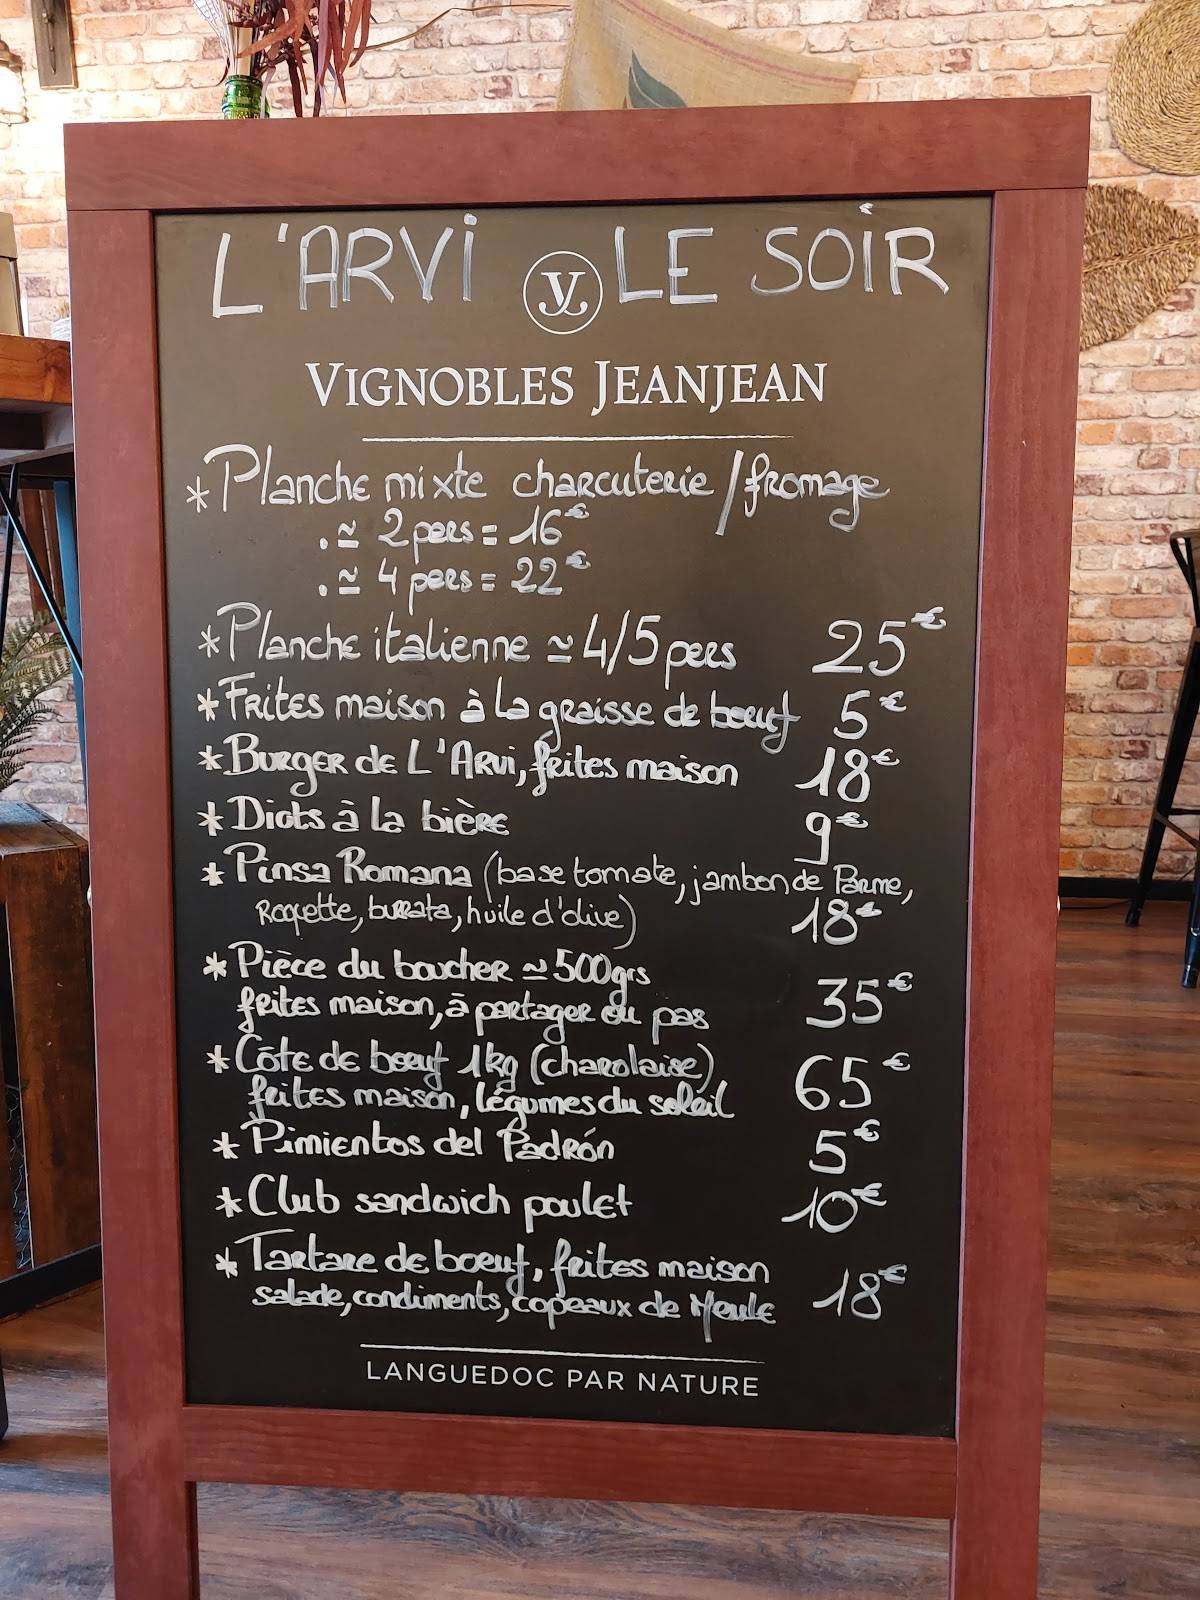 L'ARVI LE SOIR
VJ
VIGNOBLES JEANJEAN
* Planche mixte charcuterie / fromage
. ≃ 2 pers = 16€
. ≃ 4 pers = 22€
* Planche italienne ≃ 4/5 pers 25€
* Frites maison à la graisse de boeuf 5€
* Burger de L'Arvi, frites maison 18€
* Diots à la bière 9€
* Pinsa Romana (base tomate, jambon de Parme,
Roquette, burrata, huile d'olive) 18€
* Pièce du boucher ≃ 500grs
frites maison, à partager ou pas 35€
* Côte de boeuf 1kg (charolaise)
frites maison, légumes du soleil 65€
* Pimientos del Padrón 5€
* Club sandwich poulet 10€
* Tartare de boeuf, frites maison
salade, condiments, copeaux de Meule 18€
LANGUEDOC PAR NATURE